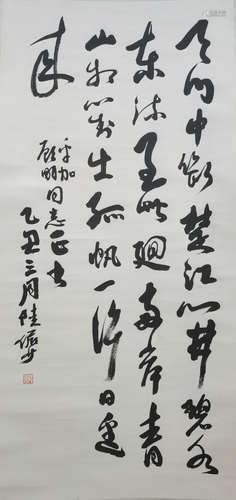 天门中断楚江開碧水
东流至此迴两岸青
山相对出孤帆一片日邊
来
同志正
乙丑三月陸儼少